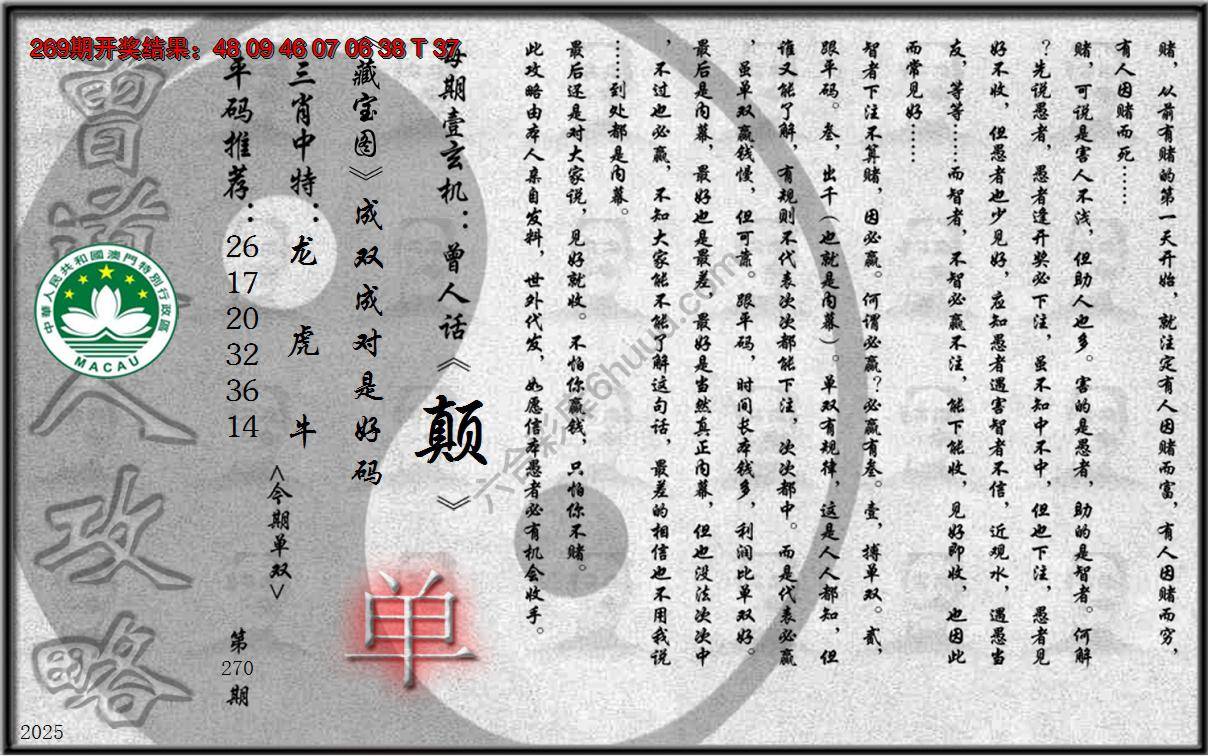 269期开奖结果：48 09 46 07 06 38 T 37
赌，从前有赌的第一天开始，就注定有人因赌而富，有人因赌而穷，
有人因赌而死……
赌，可说是害人不浅，但助人也多。害的是愚者，助的是智者。何解
？先说愚者，愚者逢开奖必下注，虽不知中不中，但也下注，愚者见
好不收，但愚者也少见好，应知愚者遇害智者不信，近观水，遇愚当
友，等等……而智者，不智必赢不注，能下能收，见好即收，也因此
而常见好……
智者下注不算赌，因必赢。何谓必赢？必赢有叁。壹，搏单双。贰，
跟平码。叁，出千（也就是内幕）。单双有规律，这是人人都知，但
谁又能了解，有规则不代表次次都能下注，次次都中。而是代表必赢
，虽单双赢钱慢，但可靠。跟平码，时间长本钱多，利润比单双好。
最后是内幕，最好也是最差，最好是当然真正内幕，但也没法次次中
，不过也必赢，不知大家能不能了解这句话，最差的相信也不用我说
……到处都是内幕。
最后还是对大家说，见好就收。不怕你赢钱，只怕你不赌。
此攻略由本人亲自发料，世外代发，如愿信本愚者必有机会收手。
每期壹玄机：曾人话《颠》
《藏宝图》成双成对是好码
三肖中特：龙 虎 牛
<今期单双>
单
平码推荐：
26
17
20
32
36
14
第
270
期
曾道人攻略
中華人民共和國澳門特別行政區
MACAU
2025